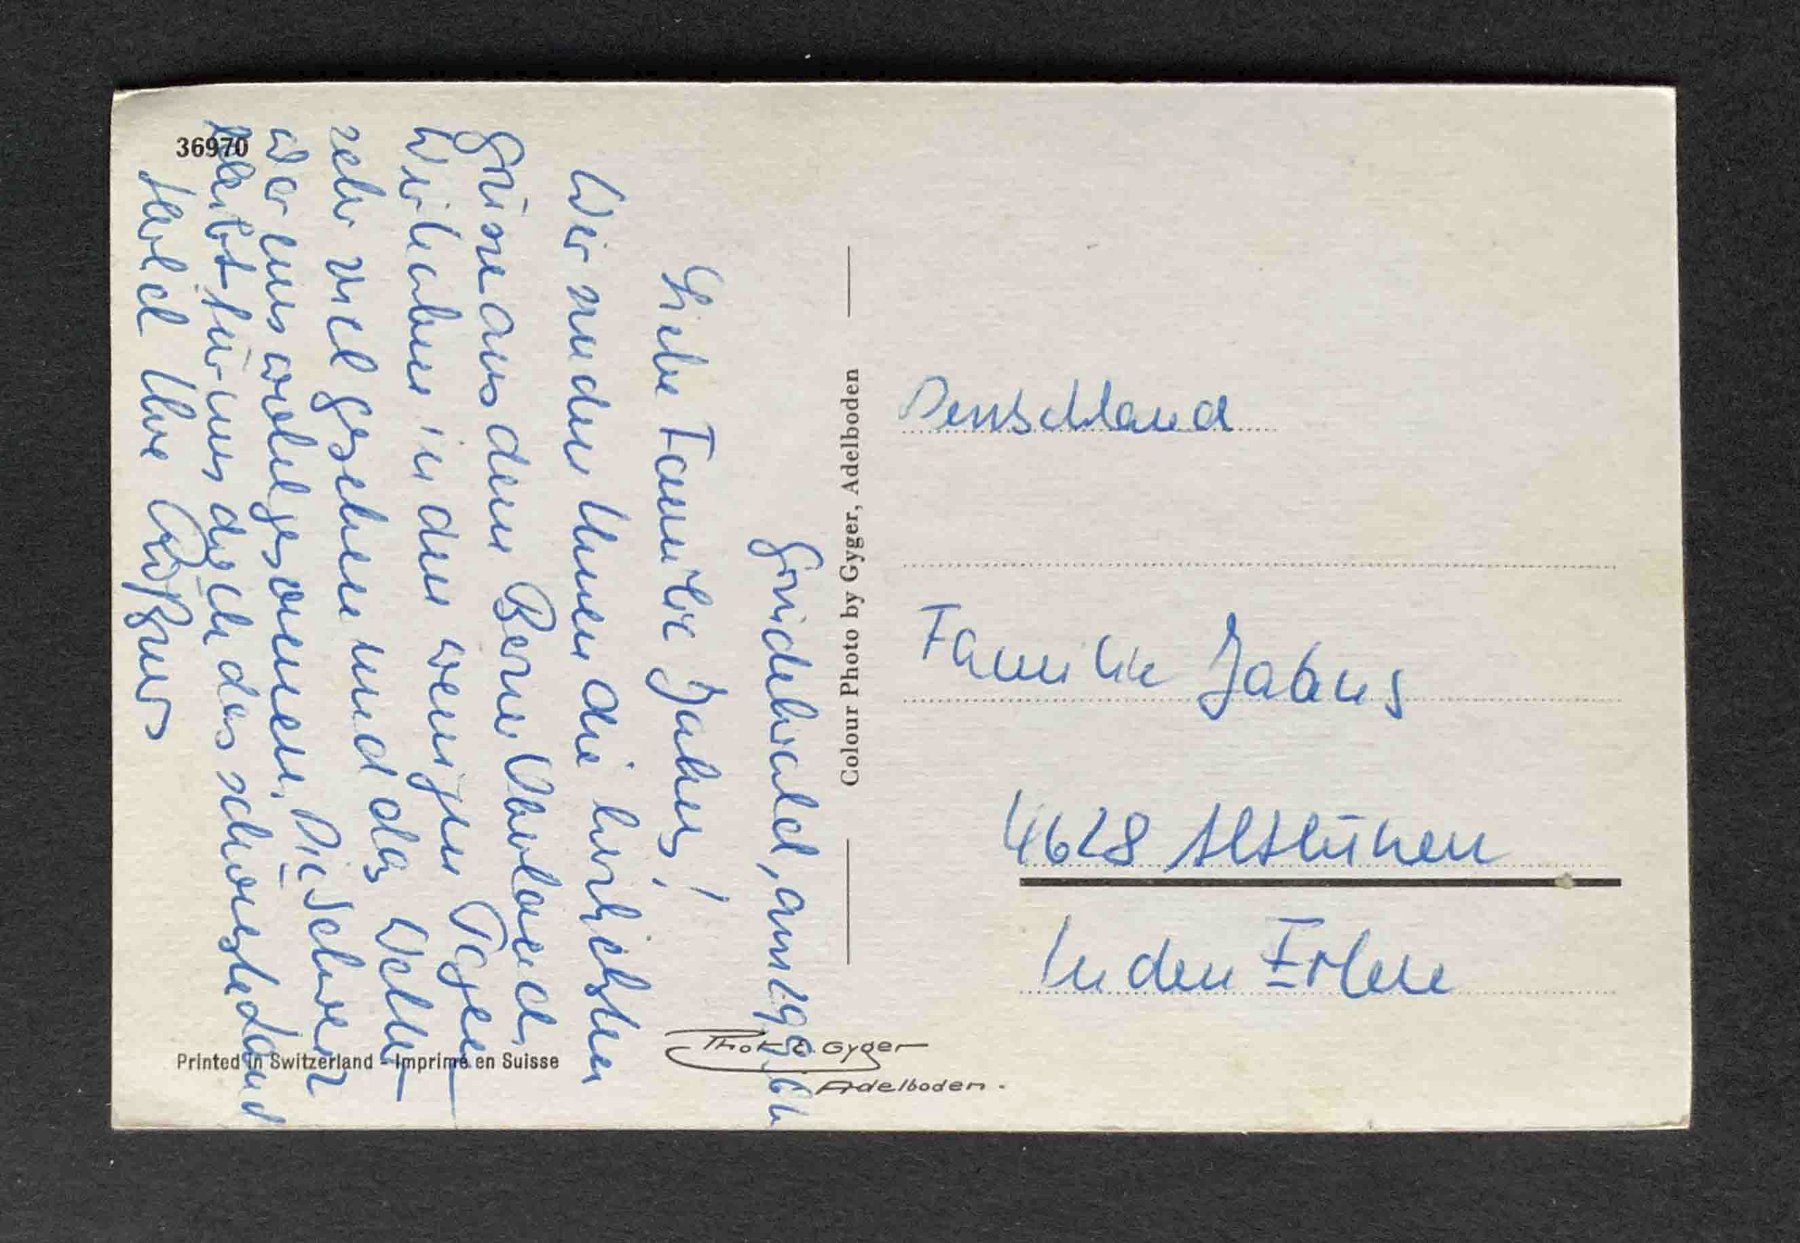 36970
Grindelwald, am 29.5.66
Liebe Familie Jabus!
Wir senden Ihnen die herzlichsten
Grüsse aus dem Berner Oberland.
Wir haben in den wenigen Tagen
sehr viel gesehen und das Wetter
war uns wohlgesonnen. Die Schweiz
bleibt für uns doch das schönste Land
Herbst Ihre
Colour Photo by Gyger, Adelboden
Deutschland
Familie Jabus
4628 Altlünen
In den Erlen
Printed in Switzerland - Imprimé en Suisse
E. Gyger
Adelboden.